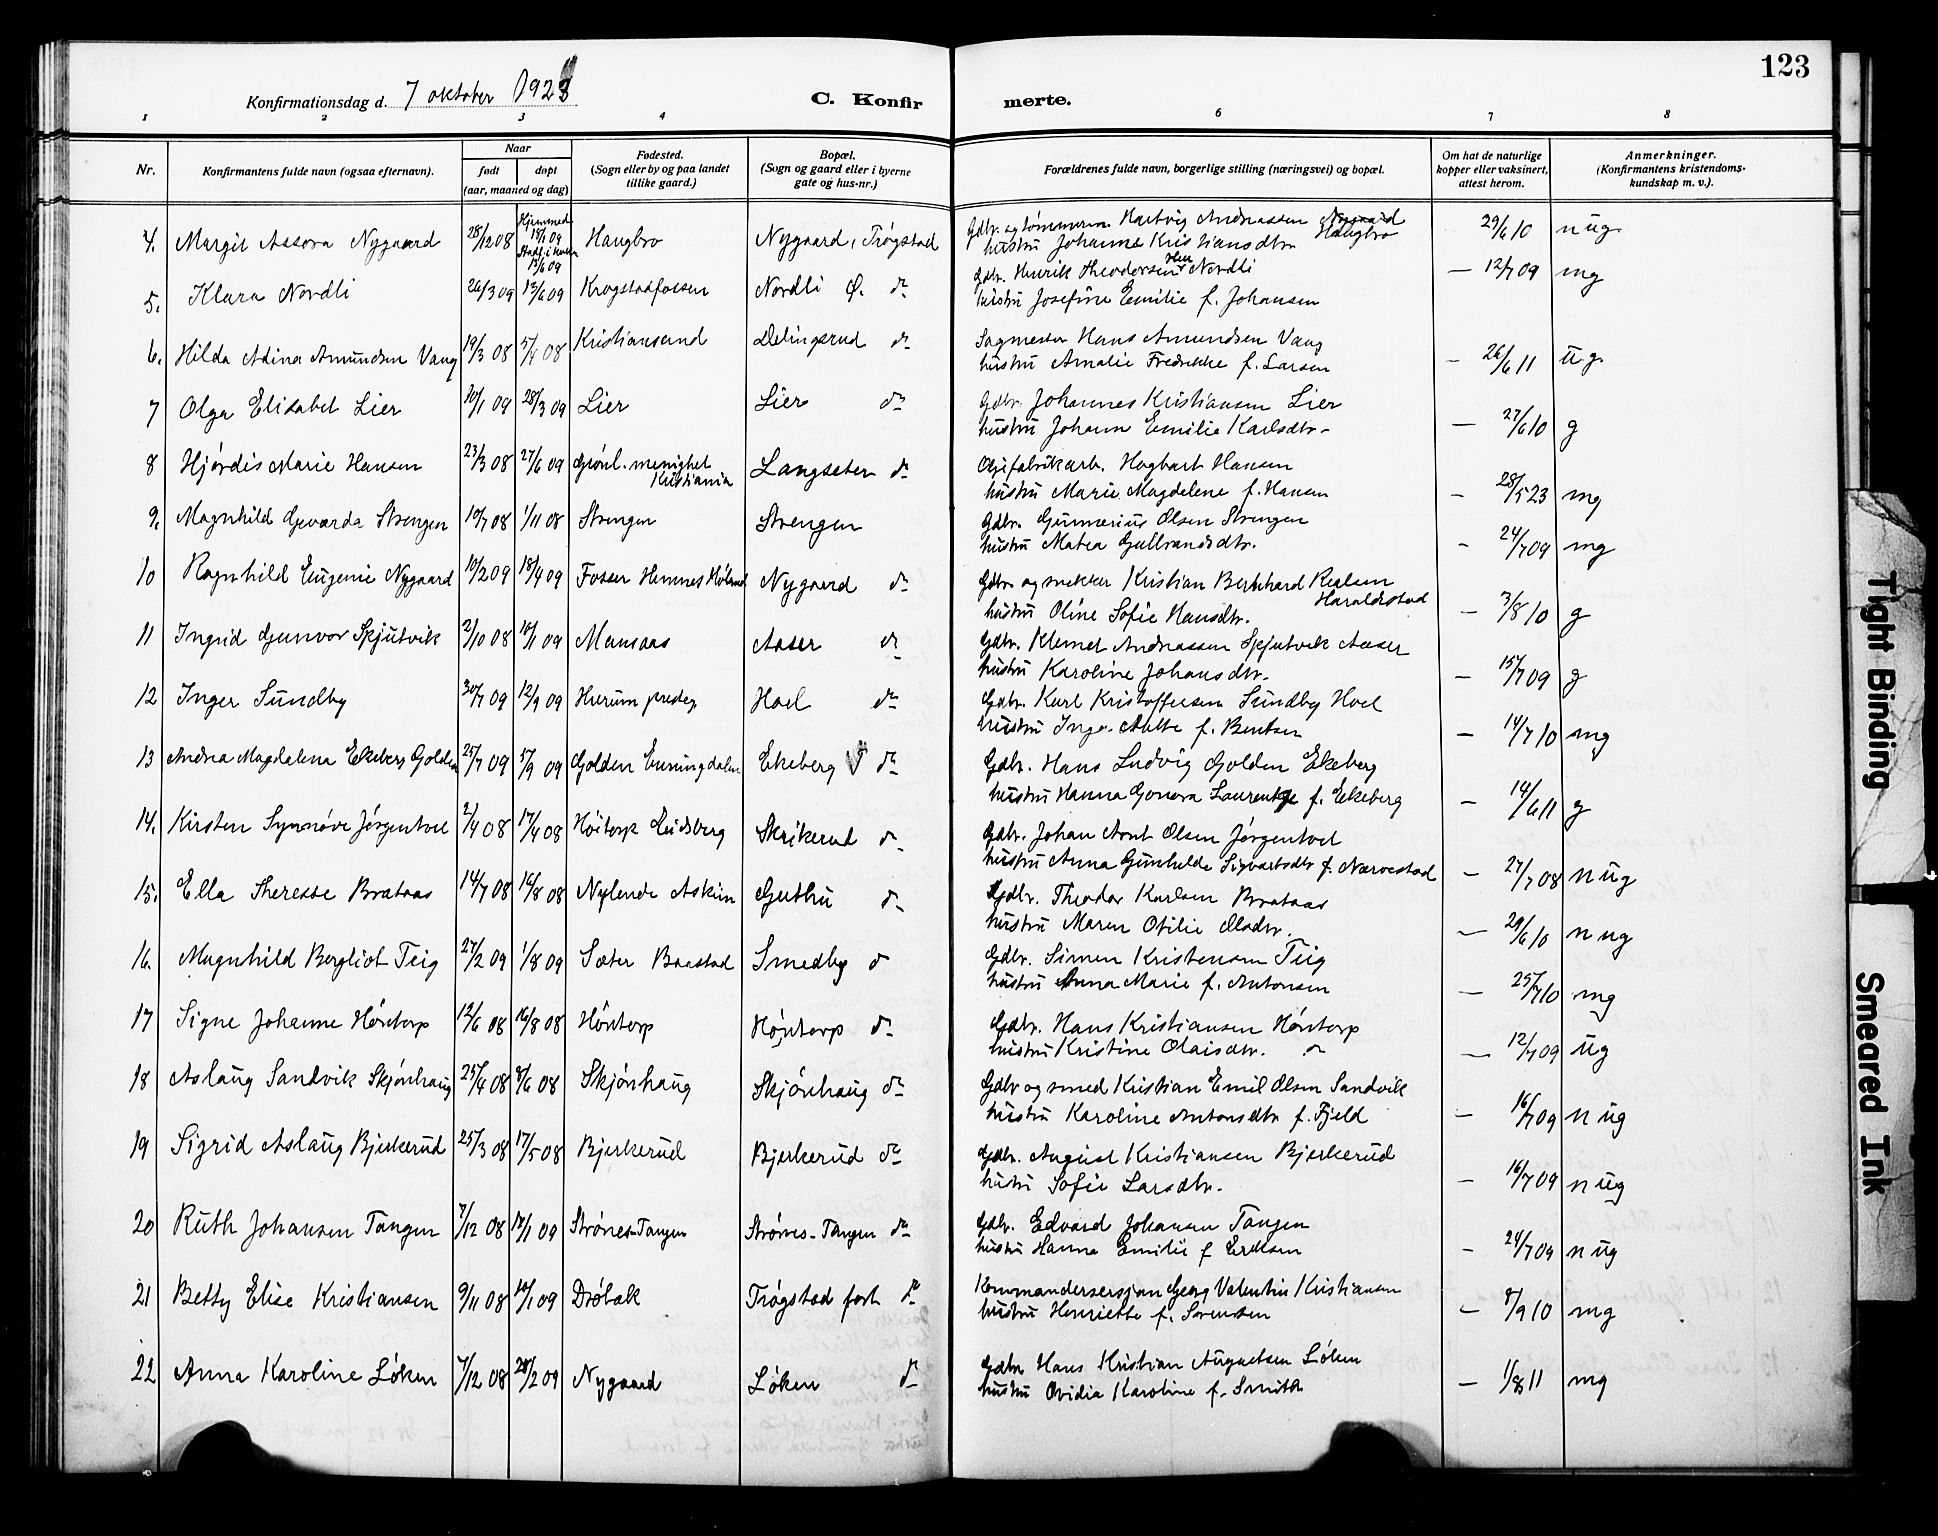 123
Konfirmationsdag d. 7 oktober 1923
C. Konfirmerte.
1 2 3 4 5 6 7 8
Nr.
Konfirmantens fulde navn (ogsaa efternavn).
Naar
født
døpt
(aar, maaned og dag)
Fødested.
(Sogn eller by og paa landet
tillike gaard.)
Bopæl.
(Sogn og gaard eller i byerne
gate og hus-nr.)
Forældrenes fulde navn, borgerlige stilling (næringsvei) og bopæl.
Om hat de naturlige
kopper eller vaksinert,
attest herom.
Anmerkninger.
(Konfirmantens kristendoms-
kundskap m. v.).
4. Margit Assora Nygaard 28/12 08 Hjemmed. 18/1 09 Haugbro Nygaard, Trøgstad
Gdbr. og tømmerm. Hartvig Andreassen Nygaard Haugbro
hustru Johanne Kristiansdtr. 29/6 10 n ug
5. Klara Nordli 26/3 09 13/6 09 Krogstadfossen Nordli Ø. do
Gdbr. Henrik Theodorsen Nordli
hustru Josefine Emilie f. Johansen — 12/7 09 mg
6. Hilda Adina Amundsen Vang 19/3 08 5/4 08 Kristiansand Delingsrud do
Sagmester Hans Amundsen Vang
hustru Amalie Fredrikke f. Larsen — 26/6 11 ug.
7 Olga Elisabet Lier 10/1 09 28/3 09 Lier Lier do
Gdbr. Johannes Kristiansen Lier
hustru Johanne Emilie Karlsdtr. — 27/6 10 g
8 Hjørdis Marie Hansen 23/3 08 27/6 09 Grønl. menighet Kristiania Langseter do
Oljefabrikarb. Hagbart Hansen
hustru Marie Magdelene f. Hansen — 28/5 23 mg
9. Magnhild Gevarda Strengen 19/7 08 1/11 08 Strengen Strengen
Gdbr. Gunnerius Olsen Strengen
hustru Matea Gulbrandsdtr. — 24/7 09 mg
10 Ragnhild Eugenie Nygaard 10/2 09 18/4 09 Fosser Hemnes Høland Nygaard do
Gdbr. og snekker Kristian Bernhard Realsen Haraldstad
hustru Oline Sofie Hansdtr. — 3/8 10 g
11 Ingrid Gunvor Skjutvik 2/10 08 10/1 09 Mansaas Aaser do
Gdbr. Klemet Andreassen Skjutvik Aaser
hustru Karoline Johansdtr. — 15/7 09 g
12 Inger Sundby 30/7 09 12/9 09 Hurum prestegj. Hoel do
Gdbr. Karl Kristoffersen Sundby Hoel
hustru Inga Alette f. Bentsen — 14/7 10 mg
13 Andrea Magdalena Ekeberg Golden 25/7 09 5/9 09 Golden Enningdalen Ekeberg do
Gdbr. Hans Ludvig Golden Ekeberg
hustru Hanna Gonora Laurentze f. Eekeberg — 14/6 11 g
14. Kirsten Synnøve Jørgentvet 2/4 08 17/4 08 Høitorp Eidsberg Skrikerud do
Gdbr. Johan Arnt Olsen Jørgentvet
hustru Anna Gunhilde Sigvartsdtr f. Narvestad — 27/7 08 n ug
15. Ella Theresse Brataas 14/7 08 16/8 08 Nylende Askim Guthu do
Gdbr. Theodor Karlsen Brataas
hustru Maren Otilie Olsdtr. — 29/6 10 n ug
16. Magnhild Bergliot Teig 27/2 09 1/8 09 Sæter Baastad Smedby do
Gdbr. Simen Kristensen Teig
hustru Anna Marie f. Antonsen — 25/7 10 mg
17 Signe Johanne Høntorp 12/6 08 16/8 08 Høntorp Høntorp do
Gdbr. Hans Kristiansen Høntorp
hustru Kristine Olaisdtr. do — 12/7 09 ug
18 Aslaug Sandvik Skjønhaug 25/4 08 8/6 08 Skjønhaug Skjønhaug do
Gdbr og smed Kristian Emil Olsen Sandvik
hustru Karoline Antonsdtr f. Fjeld — 16/7 09 n ug
19 Sigrid Aslaug Bjerkerud 25/3 08 17/5 08 Bjerkerud Bjerkerud do
Gdbr. August Kristiansen Bjerkerud
hustru Sofie Larsdtr. — 16/7 09 n ug
20 Ruth Johansen Tangen 7/12 08 17/1 09 Strønes-Tangen Strønes-Tangen do
Gdbr. Edvard Johansen Tangen
hustru Hanna Emilie f Eriksen — 24/7 09 n ug
21 Betty Elise Kristiansen 9/11 08 10/1 09 Drøbak Trøgstad fort do
Kommandersersjan Georg Valentin Kristiansen
hustru Henriette f. Sørensen — 8/9 10 mg
22 Anna Karoline Løken 7/12 08 28/2 09 Nygaard Løken do
Gdbr Hans Kristian Augustsen Løken
hustru Ovidia Karoline f. Smith — 1/8 11 mg
Tight Binding
Smeared Ink